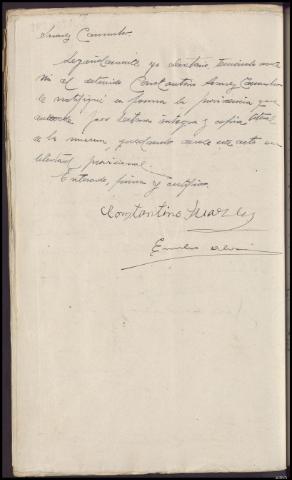 Suarez Camacho.
Seguidamente yo el Secretario teniendo ante
mi al detenido Constantino Suarez Camacho
le notifiqué en forma la providencia que
antecede por lectura integra y copia literal
de la misma, quedando desde este acto en
libertad provisional.
Enterado, firma y certifico.
Constantino Suarez
Emilio